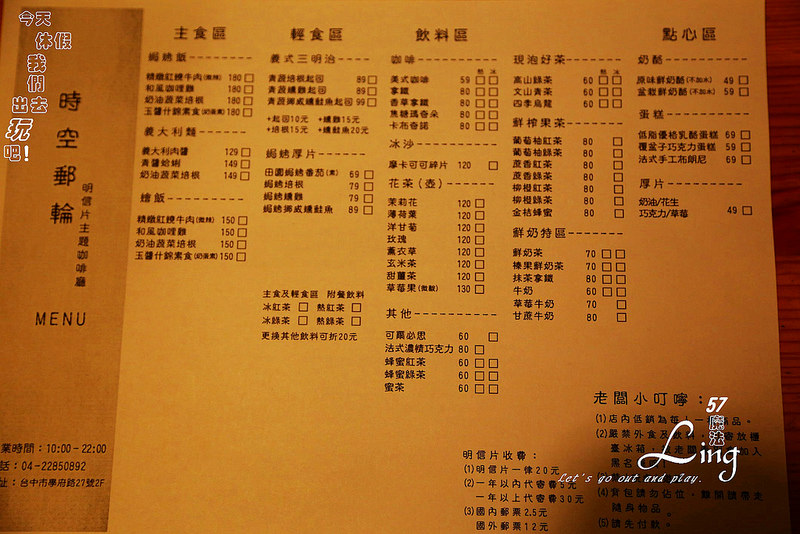 今天
休假
我們
出去
玩
吧!
時空郵輪
明信片主題咖啡廳
MENU
業時間：10:00-22:00
話：04-22850892
址：台中市學府路27號2F
主食區
焗烤飯
精緻紅燒牛肉(微辣) 180
和風咖哩雞 180
奶油蔬菜培根 180
玉醬什錦素食(奶蛋素) 180
義大利麵
義大利肉醬 129
青醬蛤蜊 149
奶油蔬菜培根 149
燴飯
精緻紅燒牛肉(微辣) 150
和風咖哩雞 150
奶油蔬菜培根 150
玉醬什錦素食(奶蛋素) 150
輕食區
義式三明治
青蔬培根起司 89
青蔬燻雞起司 89
青蔬挪威燻鮭魚起司 99
+起司10元 +燻雞15元
+培根15元 +燻鮭魚20元
焗烤厚片
田園焗烤番茄(素) 69
焗烤培根 79
焗烤燻雞 79
焗烤挪威燻鮭魚 89
主食及輕食區 附餐飲料
冰紅茶 熱紅茶
冰綠茶 熱綠茶
更換其他飲料可折20元
飲料區
咖啡
熱 冰
美式咖啡 59
拿鐵 80
香草拿鐵 80
焦糖瑪奇朵 80
卡布奇諾 80
冰沙
摩卡可可碎片 120
花茶(壺)
茉莉花 120
薄荷葉 120
洋甘菊 120
玫瑰 120
薰衣草 120
玄米茶 120
甜薑茶 120
草莓果(微酸) 130
其他
可爾必思 60
法式濃情巧克力 80
蜂蜜紅茶 60
蜂蜜綠茶 60
蜜茶 60
現泡好茶
熱 冰
高山綠茶 60
文山青茶 60
四季烏龍 60
鮮榨果茶
葡萄柚紅茶 80
葡萄柚綠茶 80
蔗香紅茶 80
蔗香綠茶 80
柳橙紅茶 80
柳橙綠茶 80
金桔蜂蜜 80
鮮奶特區
鮮奶茶 70
榛果鮮奶茶 80
抹茶拿鐵 80
牛奶 60
草莓牛奶 70
甘蔗牛奶 80
點心區
奶酪
原味鮮奶酪(不加水) 49
盆栽鮮奶酪(不加水) 59
蛋糕
低脂優格乳酪蛋糕 69
覆盆子巧克力蛋糕 59
法式手工布朗尼 69
厚片
奶油/花生
巧克力/草莓 49
明信片收費：
(1)明信片一律20元
(2)一年以內代寄費5元
一年以上代寄費30元
(3)國內郵票2.5元
國外郵票12元
老闆小叮嚀：
(1)店內低銷為每人一 品。
(2)嚴禁外食及飲料
臺冰箱 加入
黑名
(4)背包請勿佔位，離開請帶走
隨身物品。
(5)請先付款。
57
魔法
Ling
Let's go out and play.